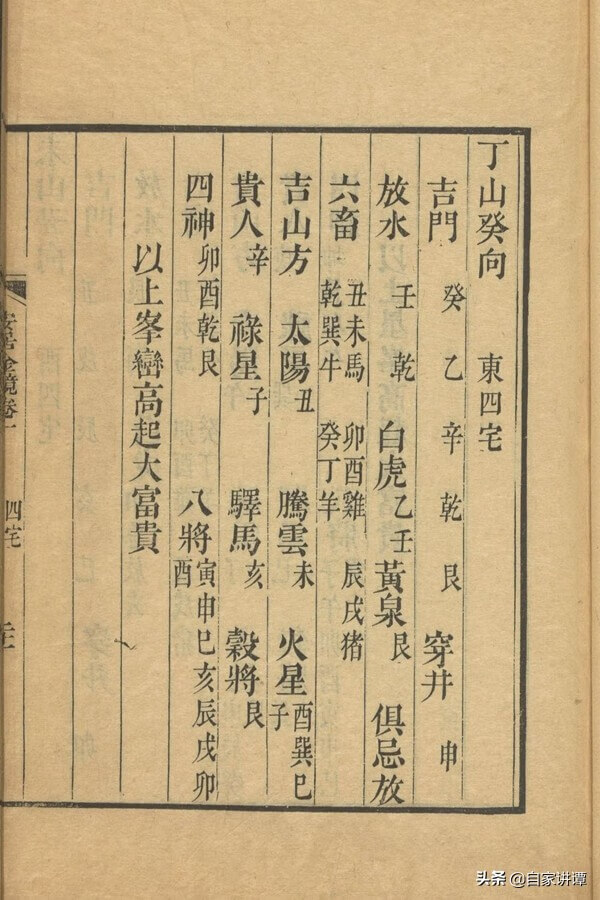 丁山癸向 東四宅
吉門 癸 乙 辛 乾 艮 穿井 申
放水 壬 乾 白虎 乙 壬 黃泉 艮 俱忌放
六畜 丑未馬 乾巽牛 卯酉雞 癸丁羊 辰戌猪
吉山方 太陽 丑 騰雲 未 火星 酉巽巳子
貴人 辛 祿星 子 驛馬 亥 穀將 艮
四神 卯酉乾艮 八將 寅申巳亥辰戌卯酉
以上峯巒高起大富貴
安居金鏡卷一 四宅
头条 @自家讲谭